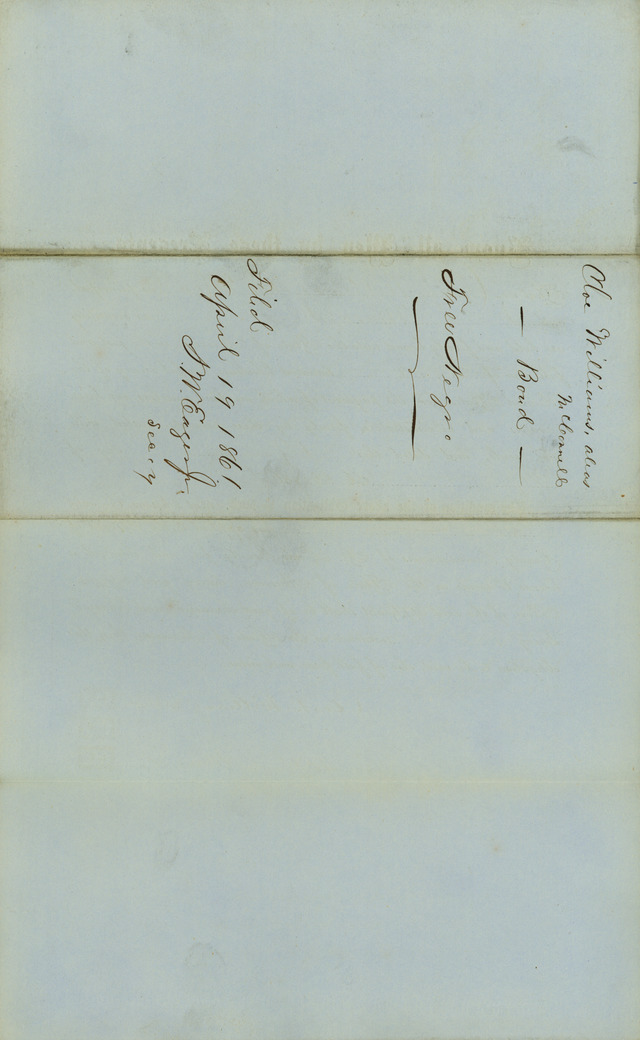 Cloe Williams, alias
McConnell
— Bond —
Free Negro
Filed
April 19 1861
S. W. Eager Jr.
Secy